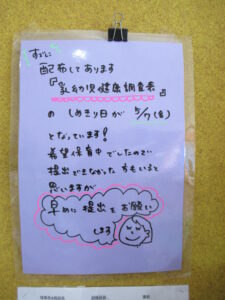 すでに
配布してあります
『乳幼児健康調査表』
の しめきり日が 5/7(金)
となっています!
希望保育中でしたので
提出できなかった方もいると
思いますが
早めに提出をお願い
します